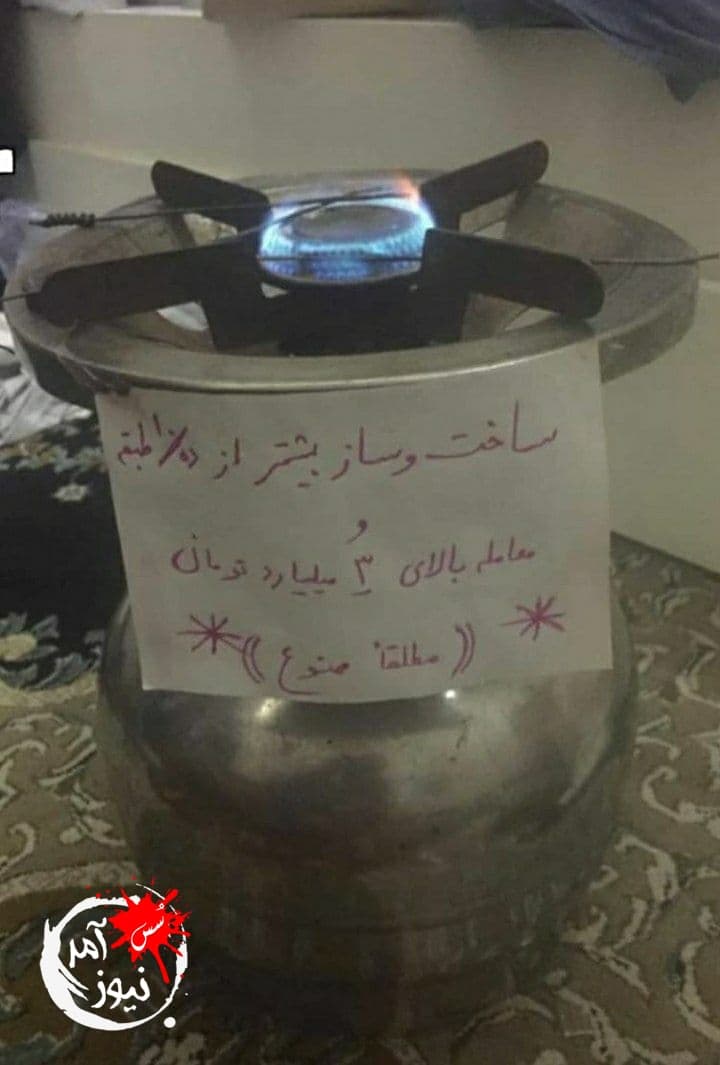 ساخت و ساز بیشتر از ده/۱۰ طبقه
و
معامله بالای ۳ میلیارد تومان
* ((مطلقاً ممنوع)) *
سس
آمد
نیوز